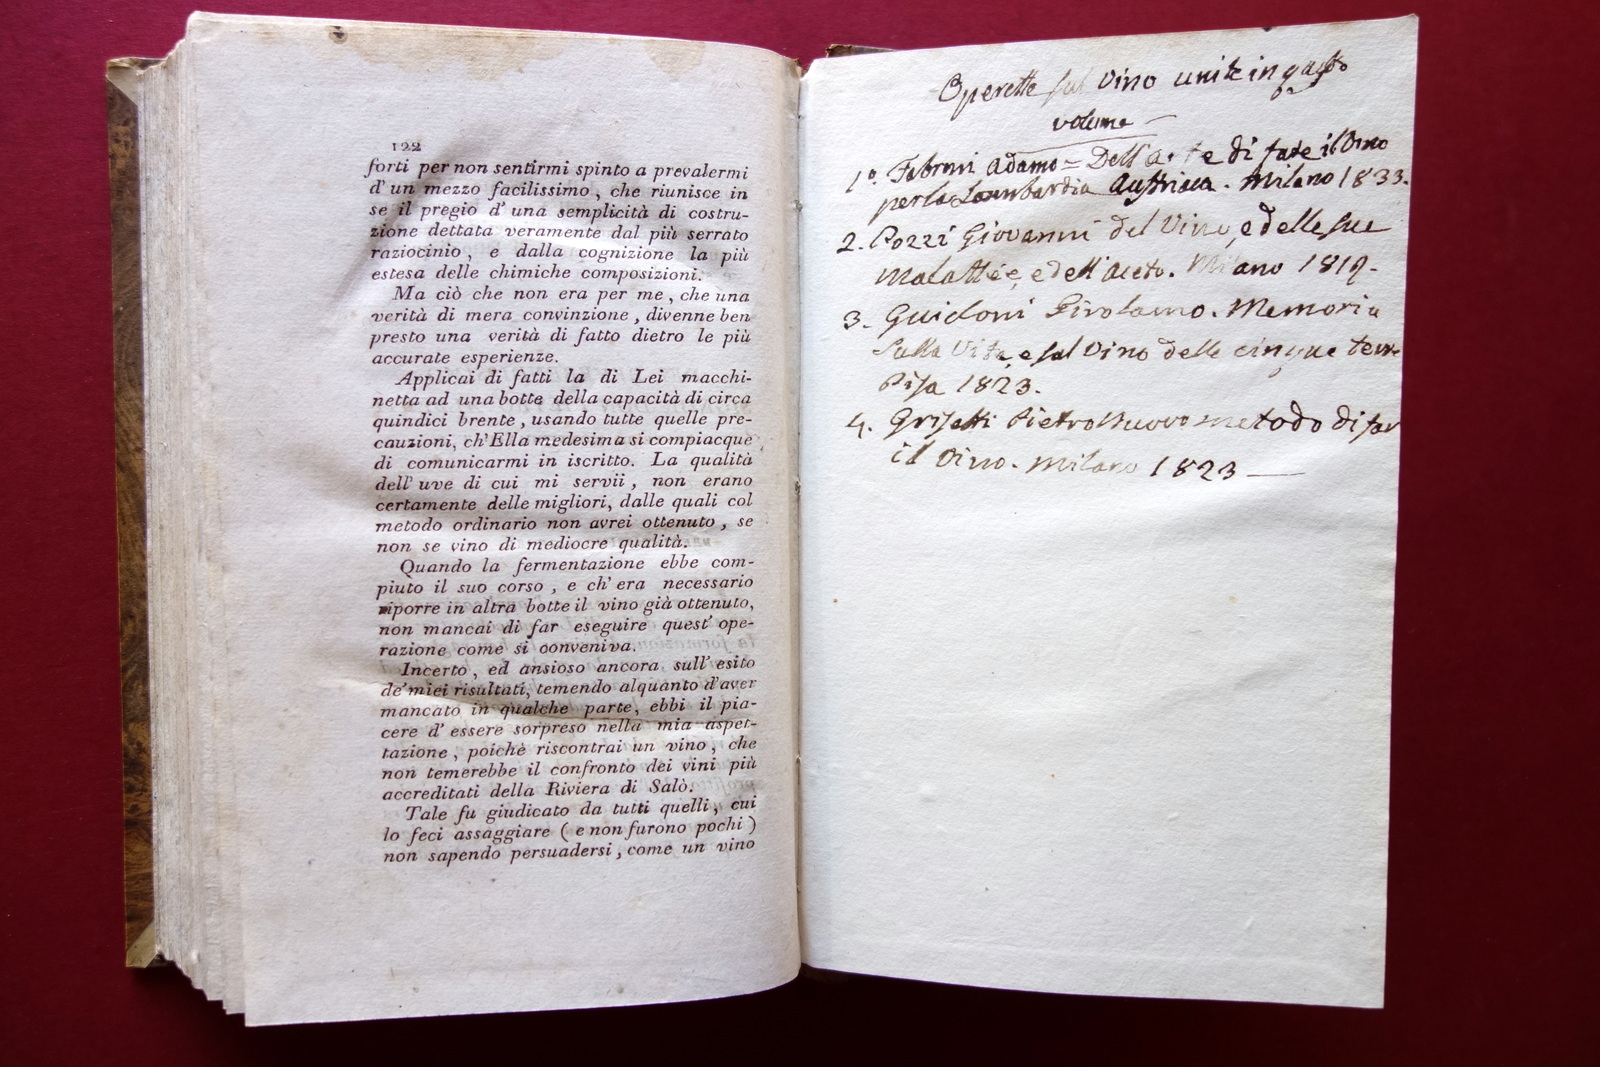 122
forti per non sentirmi spinto a prevalermi
d'un mezzo facilissimo, che riunisce in
se il pregio d'una semplicità di costru-
zione dettata veramente dal più serrato
raziocinio, e dalla cognizione la più
estesa delle chimiche composizioni.
Ma ciò che non era per me, che una
verità di mera convinzione, divenne ben
presto una verità di fatto dietro le più
accurate esperienze.
Applicai di fatti la di Lei macchi-
netta ad una botte della capacità di circa
quindici brente, usando tutte quelle pre-
cauzioni, ch'Ella medesima si compiacque
di comunicarmi in iscritto. La qualità
dell'uve di cui mi servii, non erano
certamente delle migliori, dalle quali col
metodo ordinario non avrei ottenuto, se
non se vino di mediocre qualità.
Quando la fermentazione ebbe com-
piuto il suo corso, e ch'era necessario
riporre in altra botte il vino già ottenuto,
non mancai di far eseguire quest'ope-
razione come si conveniva.
Incerto, ed ansioso ancora sull'esito
de'miei risultati, temendo alquanto d'aver
mancato in qualche parte, ebbi il pia-
cere d'essere sorpreso nella mia aspet-
tazione, poichè riscontrai un vino, che
non temerebbe il confronto dei vini più
accreditati della Riviera di Salò.
Tale fu giudicato da tutti quelli, cui
lo feci assaggiare (e non furono pochi)
non sapendo persuadersi, come un vino
Operette sul Vino unite in questo
volume
1º. Fabroni Adamo = Dell'arte di fare il Vino
per la Lombardia Austriaca. Milano 1833.
2. Pozzi Giovanni del Vino, e delle sue
Malattie, e dell'Aceto. Milano 1819.
3. Guidoni Girolamo. Memoria
sulla Vite, e sul Vino delle cinque terre
Pisa 1823.
4. Grisetti Pietro Nuovo metodo di far
il Vino. Milano 1823